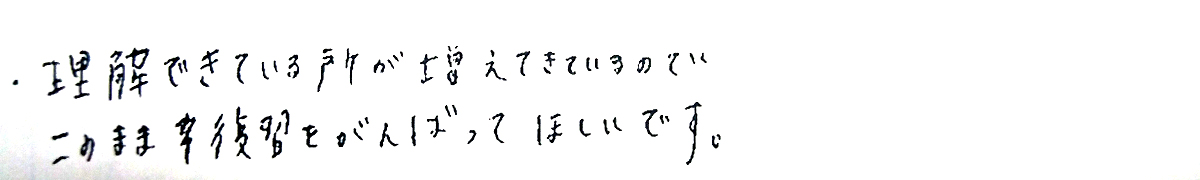 ・理解できている所が増えてきているので
このまま復習をがんばってほしいです。